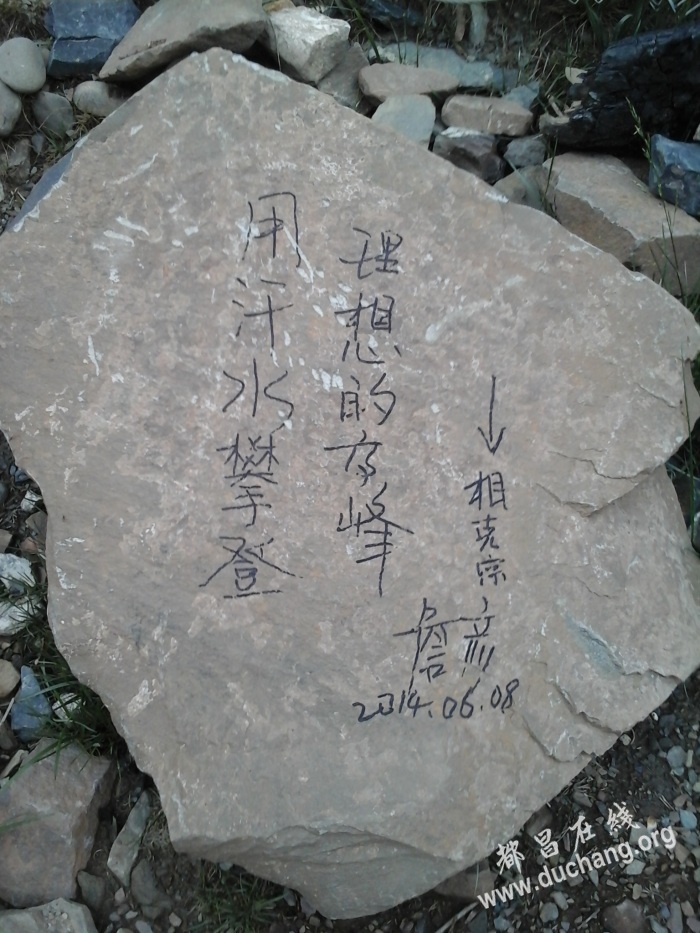 用汗水攀登
理想的高峰
↓
相克宗
詹彦
2014.06.08
都昌在线
www.duchang.org